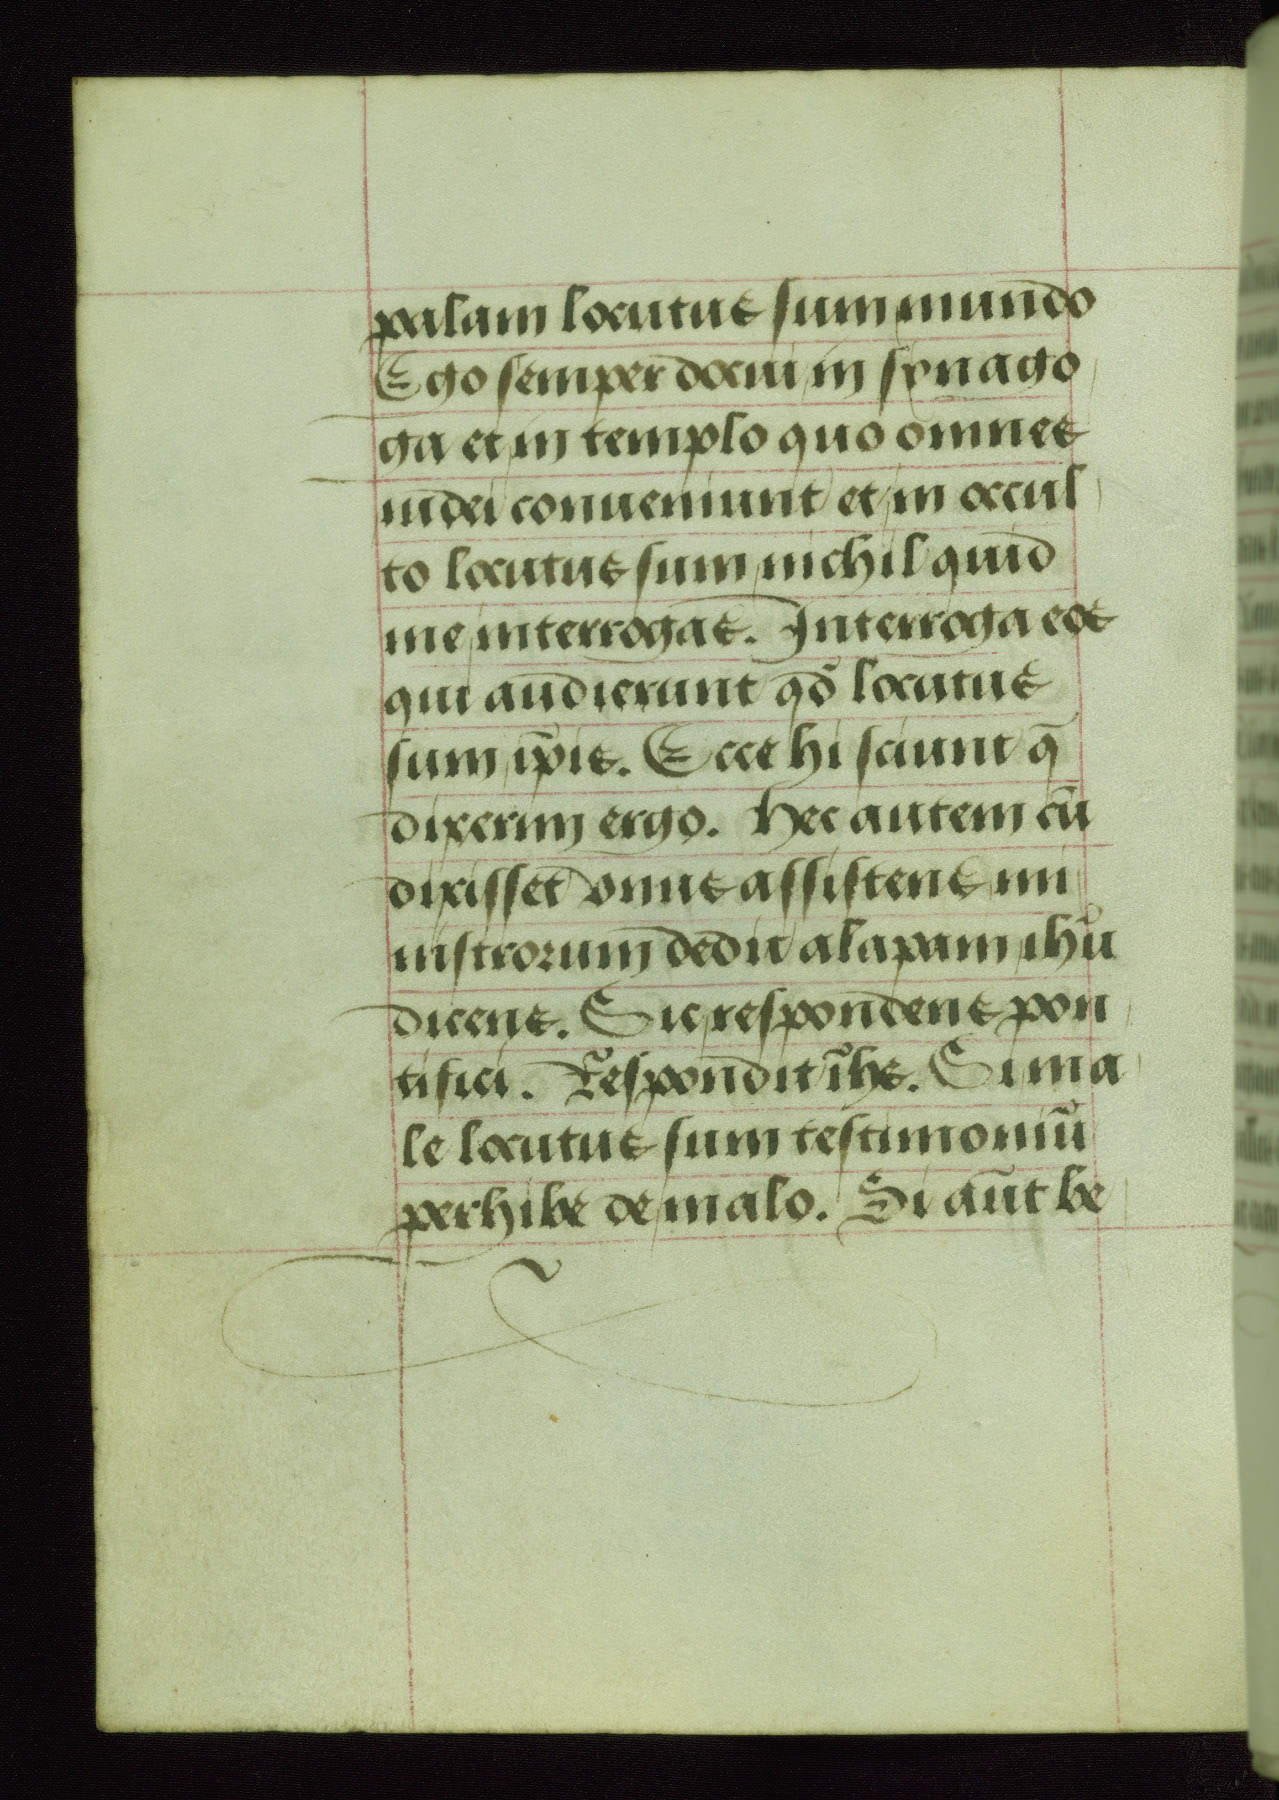 palam locutus sum mundo
Ego semper docui in synago
ga et in templo quo omnes
iudei conueniunt et in occul
to locutus sum nichil quid
me interrogas. Interroga eos
qui audierunt qd̄ locutus
sum ip̄is. Ecce hi sciunt q̄
dixerim ergo. Hec autem cū
dixisset vnus assistens mi
nistrorum dedit alapam ihū
dicens. Sic respondens pon
tifici. Respondit ih̄s. Si ma
le locutus sum testimoniū
perhibe de malo. Si aūt be